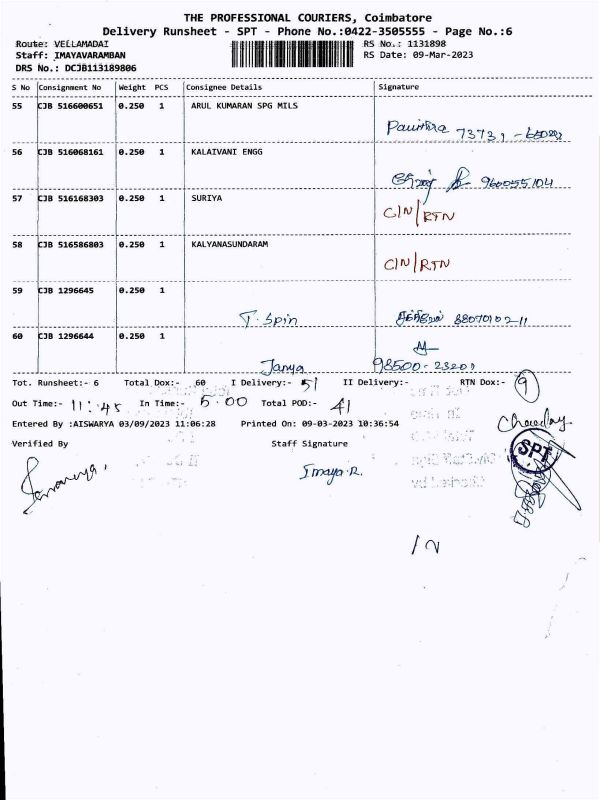 THE PROFESSIONAL COURIERS, Coimbatore
Delivery Runsheet - SPT - Phone No.:0422-3505555 - Page No.:6
Route: VELLAMADAI
RS No.: 1131898
Staff: IMAYAVARAMBAN
RS Date: 09-Mar-2023
DRS No.: DCJB113189806
S No Consignment No Weight PCS Consignee Details Signature
55 CJB 516600651 0.250 1 ARUL KUMARAN SPG MILS
Pavithra
56 CJB 516068161 0.250 1 KALAIVANI ENGG
960055104
57 CJB 516168303 0.250 1 SURIYA
C/N/RTN
58 CJB 516586803 0.250 1 KALYANASUNDARAM
C/N/RTN
59 CJB 1296645 0.250 1
T. Spin
60 CJB 1296644 0.250 1
98500-23201
Tot. Runsheet:- 6 Total Dox:- 60 I Delivery:- 51 II Delivery:- RTN Dox:- 9
Out Time:- 11:45 In Time:- 5.00 Total POD:- 41
Entered By :AISWARYA 03/09/2023 11:06:28 Printed On: 09-03-2023 10:36:54
Verified By Staff Signature
SPT
Imaya.R.